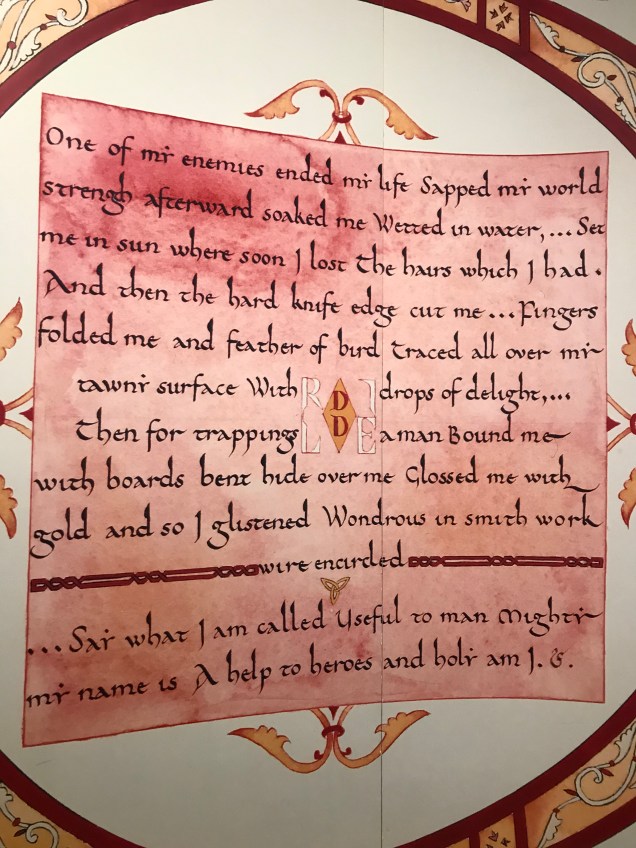 One of my enemies ended my life Sapped my world
strengh afterward soaked me Wetted in water,... Set
me in sun where soon I lost The hairs which I had.
And then the hard knife edge cut me... Fingers
folded me and feather of bird Traced all over my
tawny surface With R D I drops of delight,...
Then for trappings L D E a man Bound me
with boards bent hide over me Glossed me with
gold and so I glistened Wondrous in smith work
wire encircled
... Say what I am called Useful to man Mighty
my name is A help to heroes and holy am I. &.